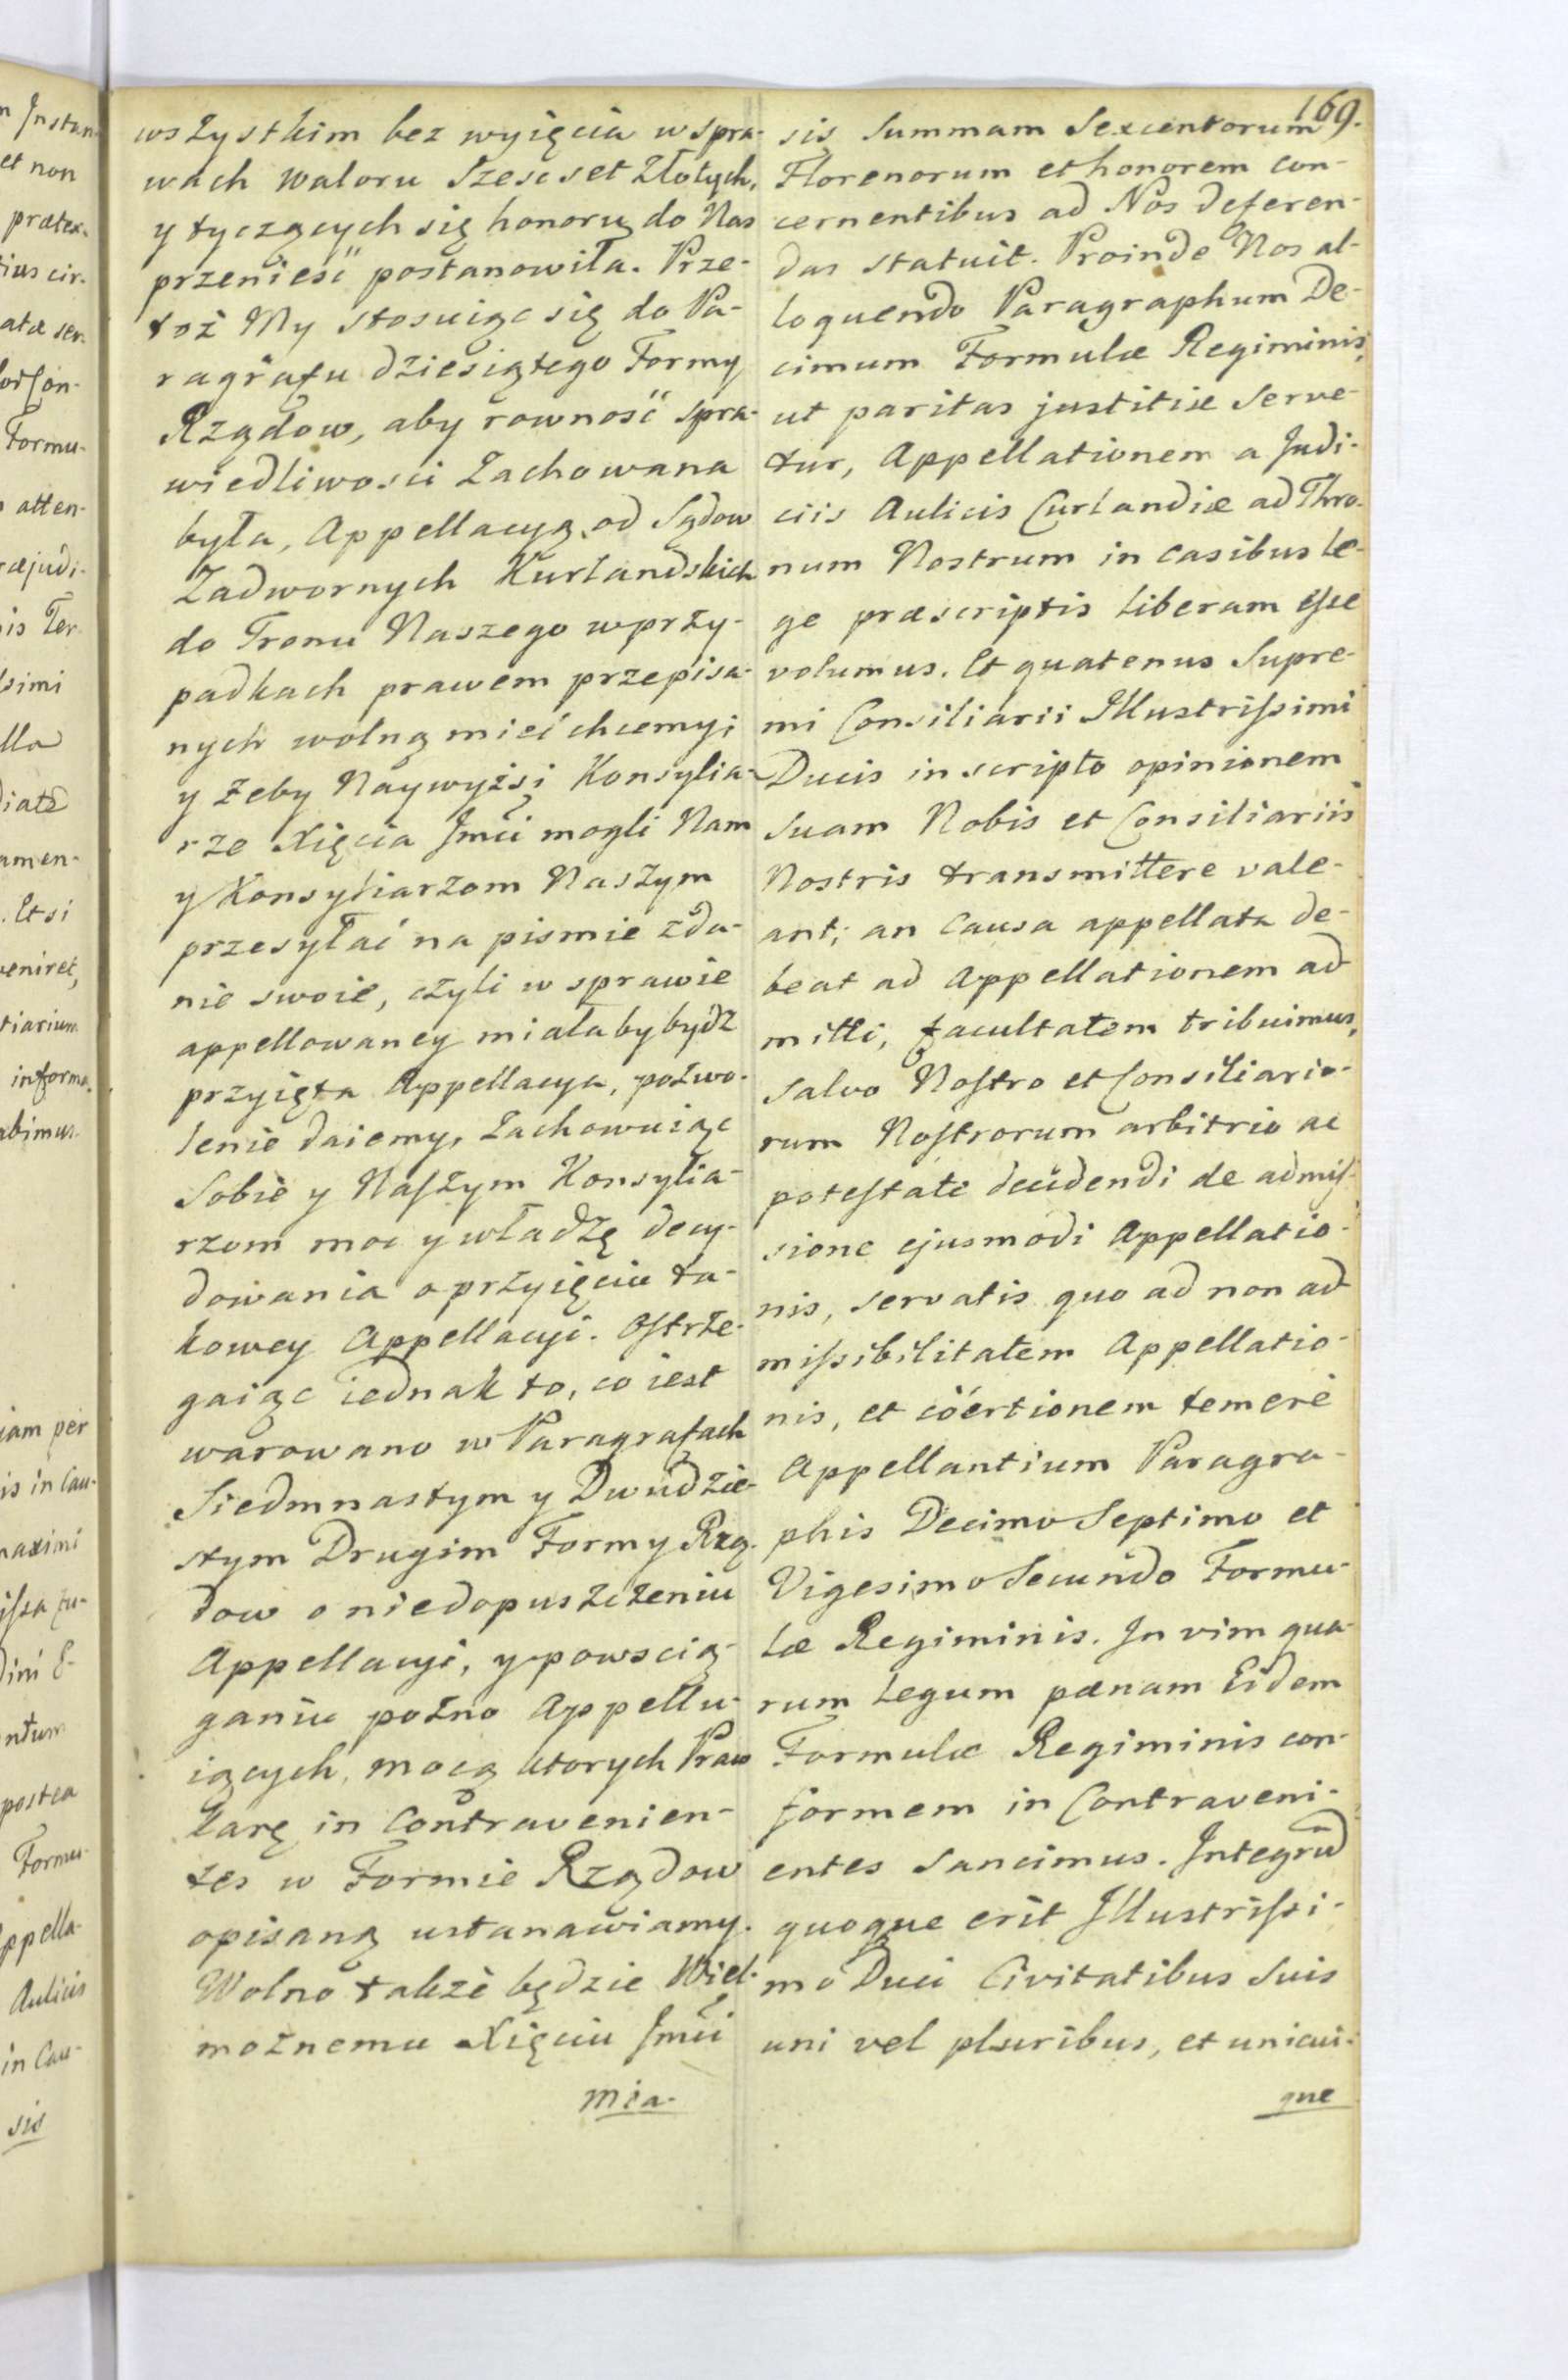 169.
wszystkim bez wyięcia w spra-
wach waloru Szescset Złotych,
y tyczących się honoru do Nas
przenieść postanowiła. Prze-
toż My stosuiąc się do Pa-
ragrafu dziesiątego Formy
Rządow, aby rowność spra-
wiedliwosci zachowana
była, Appellacyą od Sądow
Zadwornych Kurlandskich
do Tronu Naszego w przy-
padkach prawem przepisa-
nych wolną mieć chcemy;
y żeby Naywyżsi Konsylia-
rze Xięcia Jmći mogli Nam
y Konsyliarzom Naszym
przesyłać na pismie zda-
nie swoie, czyli w sprawie
appellowaney miałaby bydz
przyięta Appellacya, pozwo-
lenie daiemy, zachowuiąc
Sobie y Naszym Konsylia-
rzom moc y władzę decy-
dowania o przyięciu ta-
kowey Appellacyi. Ostrze-
gaiąc iednak to, co iest
warowano w Paragrafach
Siedmnastym y Dwudzie-
stym Drugim Formy Rzą-
dow o niedopuszczeniu
Appellacyi, y powscią-
ganiu pożno Appellu-
iących, mocą ktorych Praw
karę in Contravenien-
tes w Formie Rządow
opisaną ustanawiamy.
Wolno także będzie Wiel-
możnemu Xięciu Jmći
mia-
sis Summam Sexcentorum
Florenorum et honorem con-
cernentibus ad Nos deferen-
das statuit. Proinde Nos al-
loquendo Paragraphum De-
cimum Formulæ Regiminis,
ut paritas justitiæ serve-
tur, Appellationem a Judi-
ciis Aulicis Curlandiæ ad Thro-
num Nostrum in casibus le-
ge præscriptis liberam esse
volumus. Et quatenus Supre-
mi Consiliarii Illustrissimi
Ducis in scripto opinionem
Suam Nobis et Consiliariis
Nostris transmittere vale-
ant; an Causa appellata de-
beat ad Appellationem ad
mitti, facultatem tribuimus,
Salvo Nostro et Consiliario-
rum Nostrorum arbitrio ac
potestate decidendi de admis-
sione ejusmodi Appellatio-
nis, servatis quo ad non ad
missibilitatem Appellatio-
nis, et cöertionem temerè
Appellantium Paragra-
phis Decimo Septimo et
Vigesimo Secundo Formu-
læ Regiminis. In vim qua-
rum Legum pænam Eidem
Formulæ Regiminis con-
formem in Contraveni-
entes sancimus. Integrũ
quoque erit Illustrissi-
mo Duci Civitatibus Suis
uni vel pluribus, et unicui-
que